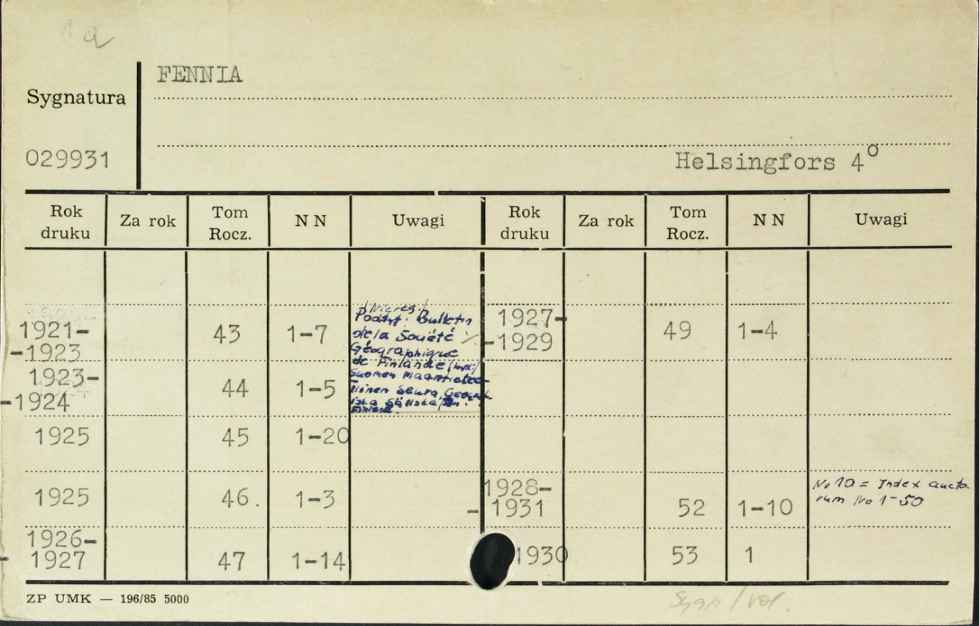 a
FENNIA
Sygnatura
029931
Helsingfors 4°
Rok druku Za rok Tom Rocz. N N Uwagi Rok druku Za rok Tom Rocz. N N Uwagi
1921-
-1923 43 1-7
Bulletin
de la Société
Géographique
de Finlande
Suomen
Seura
1927-
-1929 49 1-4
1923-
-1924 44 1-5
1925 45 1-20
1925 46. 1-3
1928-
-1931 52 1-10
No 10 = Index aucto
rum No 1-50
1926-
-1927 47 1-14
1930 53 1
ZP UMK — 196/85 5000
Sygn / vol.